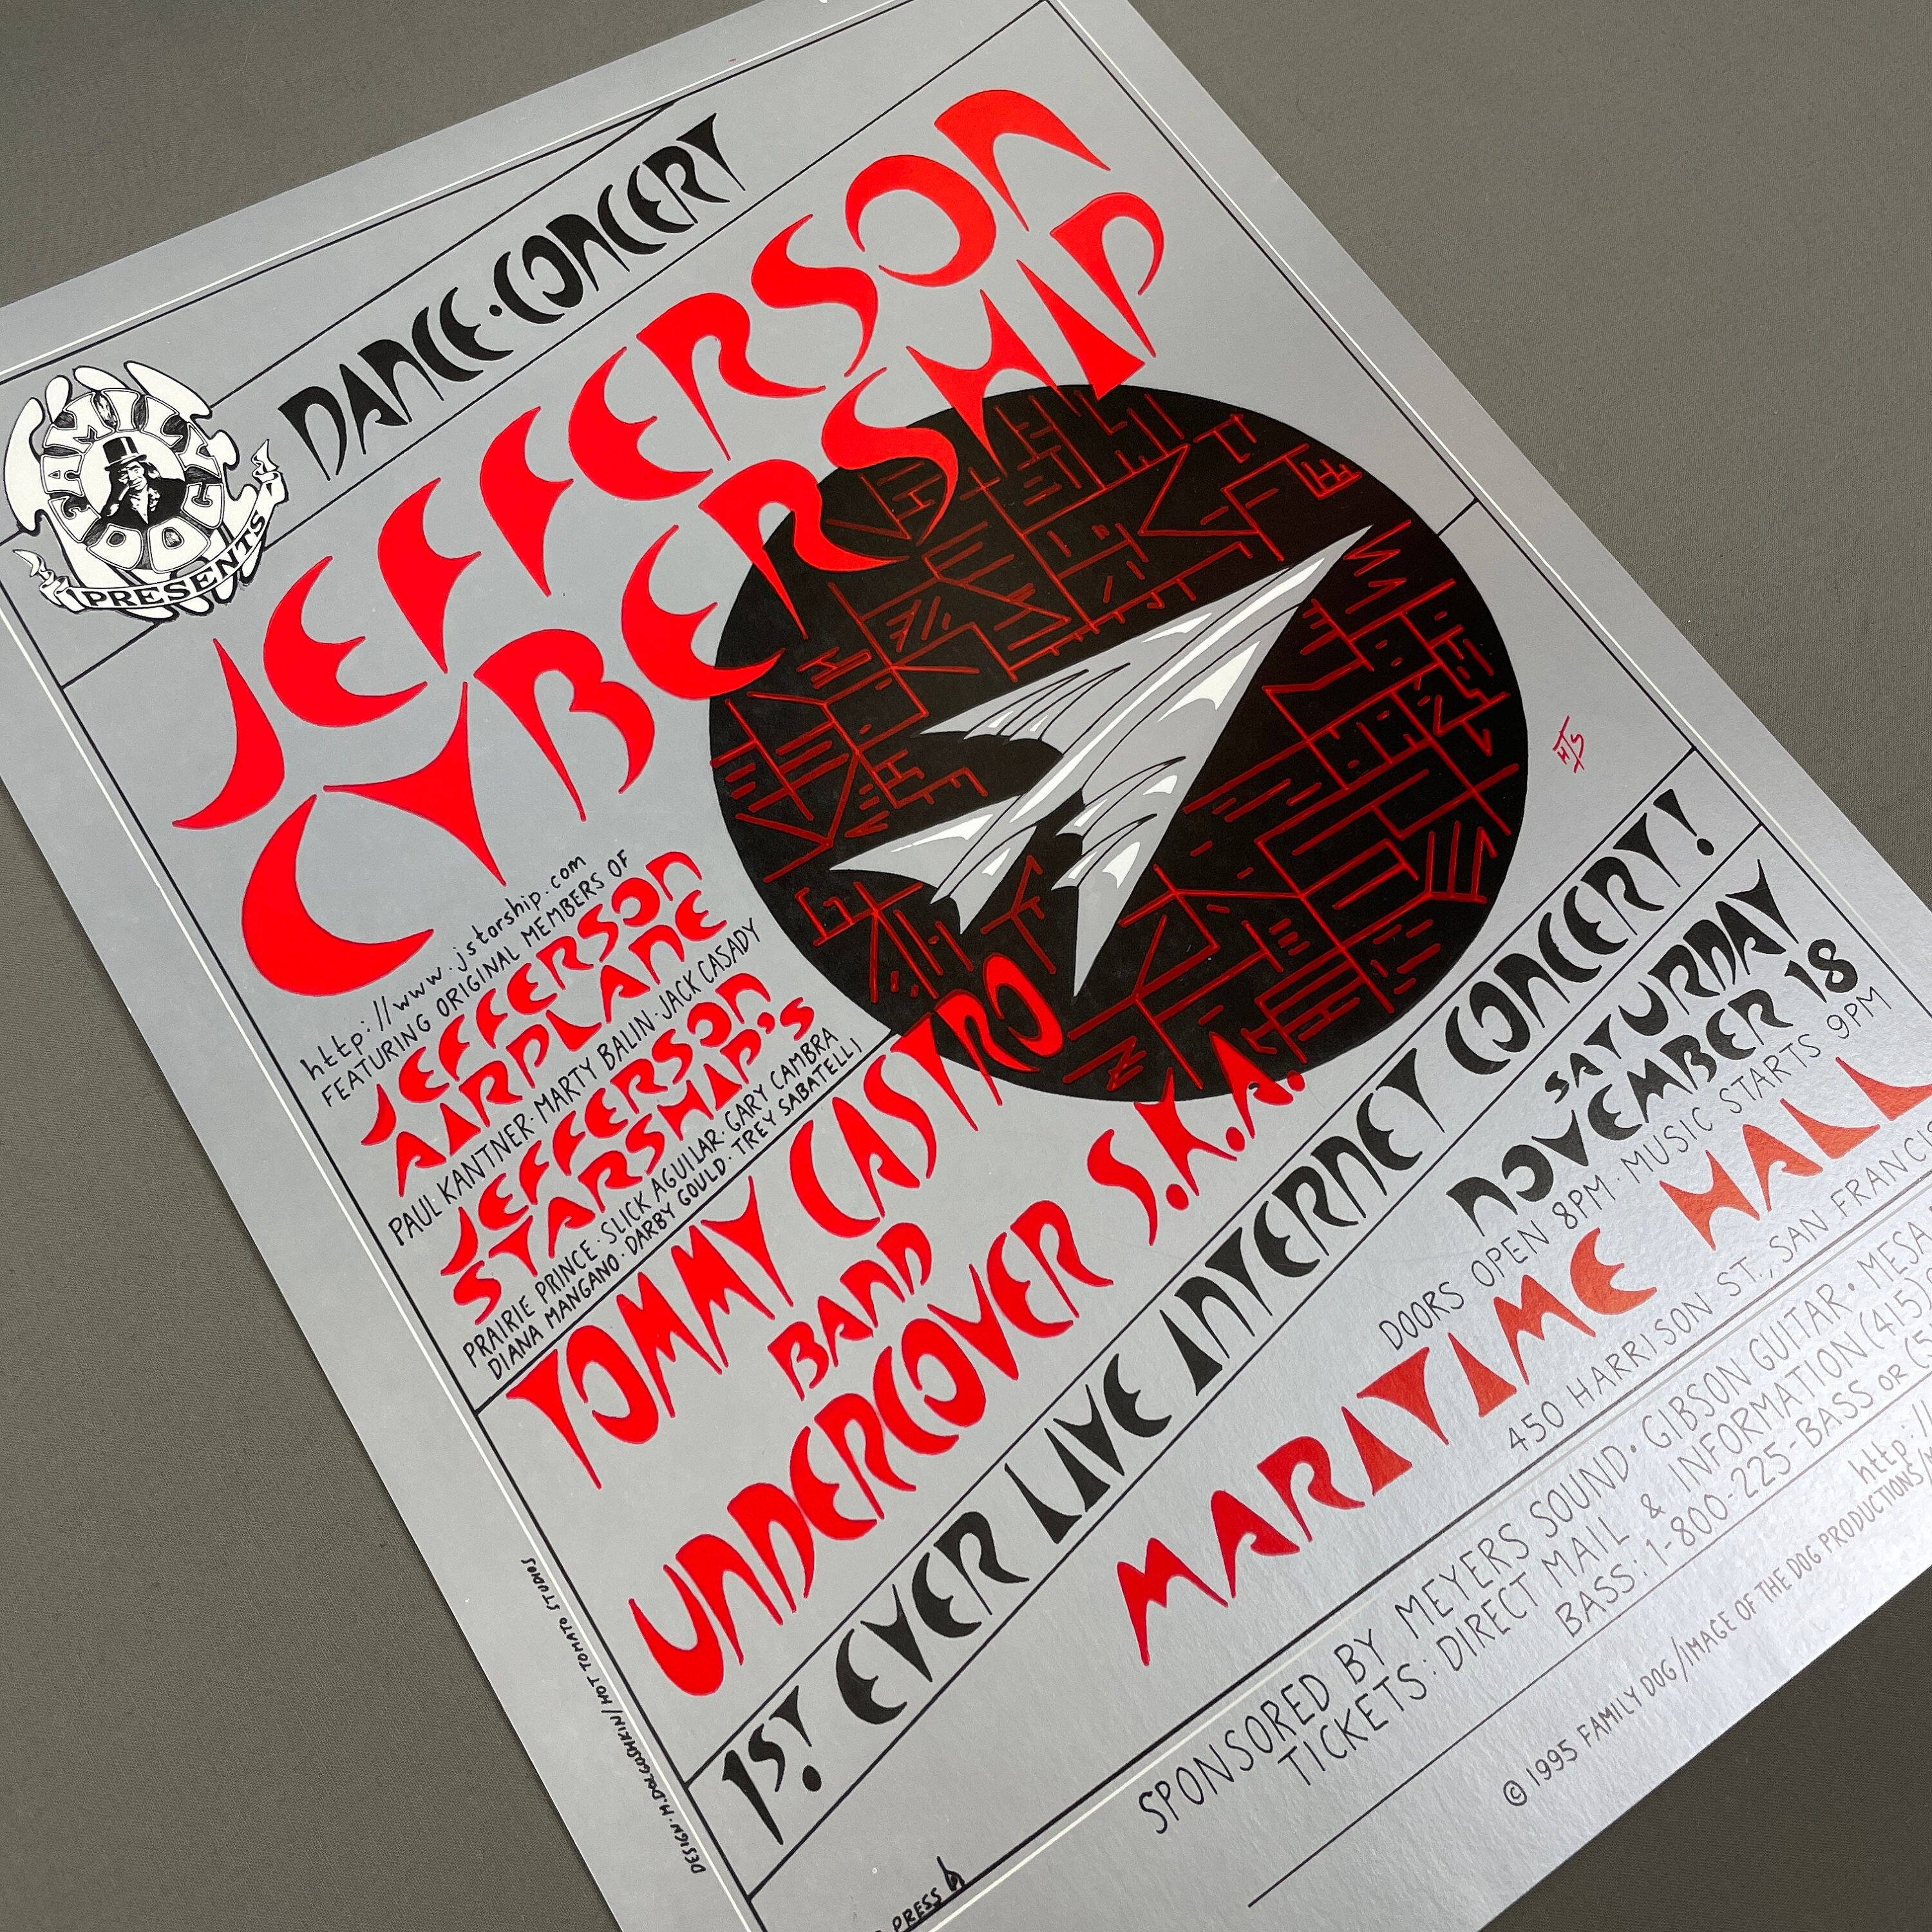 FAMILY DOG
PRESENTS
DANCE·CONCERT
JEFFERSON
CYBERSHIP
http://www.jstarship.com
FEATURING ORIGINAL MEMBERS OF
JEFFERSON
AIRPLANE
PAUL KANTNER·MARTY BALIN·JACK CASADY
JEFFERSON
STARSHIP'S
PRAIRIE PRINCE·SLICK AGUILAR·GARY CAMBRA
DIANA MANGANO·DARBY GOULD·TREY SABATELLI
HTS
TOMMY CASTRO
BAND
UNDERCOVER S.K.A.
1ST EVER LIVE INTERNET CONCERT!
SATURDAY
NOVEMBER 18
DOORS OPEN 8PM·MUSIC STARTS 9PM
MARITIME HALL
450 HARRISON ST., SAN
SPONSORED BY MEYERS SOUND·GIBSON GUITAR·
TICKETS: DIRECT MAIL & INFORMATION (415)
BASS: 1-800-225-BASS OR
http:/
© 1995 FAMILY DOG/IMAGE OF THE DOG PRODUCTIONS/
DESIGN·M.DOLGOSHKIN/HOT TOMATO STUDIOS
PRESS